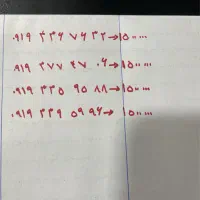 ۰۹۱۹ ۳۳۶ ۷۶ ۳۲ → ۱۵۰۰۰۰۰
۰۹۱۹ ۲۷۷ ۴۷ ۰۶ → ۱۵۰۰۰۰۰
۰۹۱۹ ۳۳۵ ۹۵ ۸۸ → ۱۵۰۰۰۰۰
۰۹۱۹ ۳۳۹ ۵۹ ۹۶ → ۱۵۰۰۰۰۰